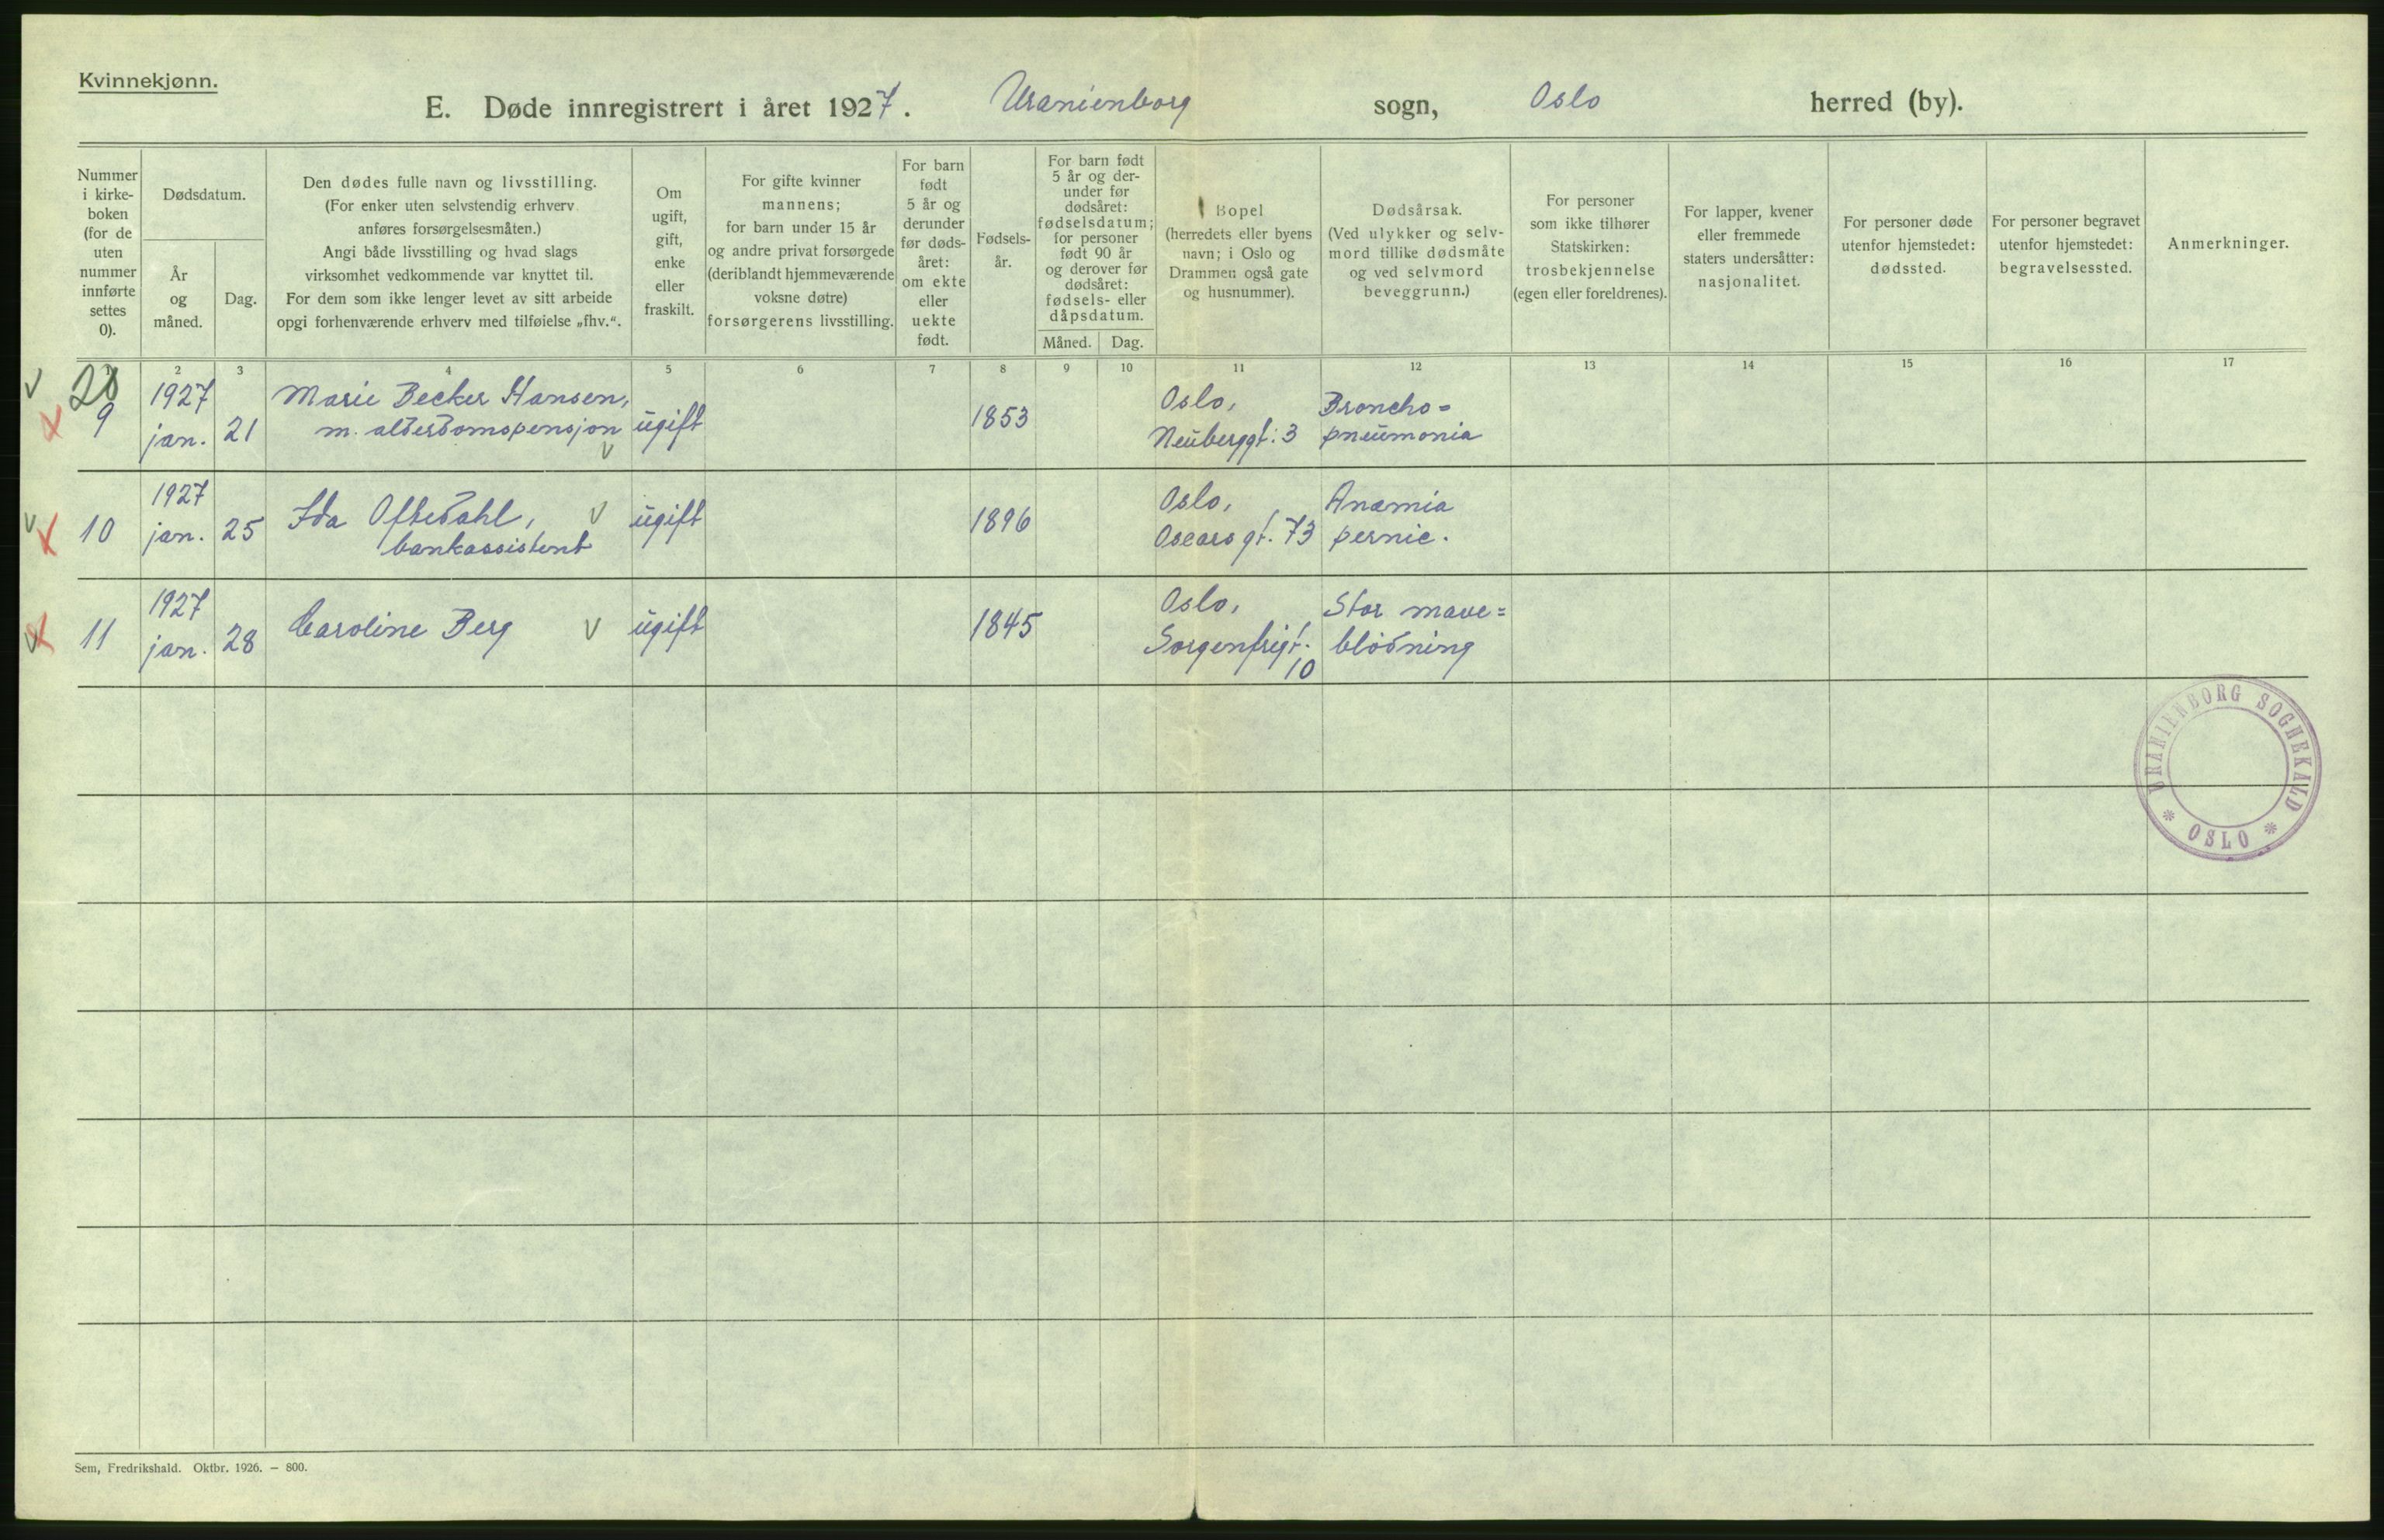 Kvinnekjønn.
E. Døde innregistrert i året 1927. Uranienborg sogn, Oslo herred (by).
Nummer
i kirke-
boken
(for de
uten
nummer
innførte
settes
0).
Dødsdatum.
År
og
måned.
Dag.
Den dødes fulle navn og livsstilling.
(For enker uten selvstendig erhverv
anføres forsørgelsesmåten.)
Angi både livsstilling og hvad slags
virksomhet vedkommende var knyttet til.
For dem som ikke lenger levet av sitt arbeide
opgi forhenværende erhverv med tilføielse „fhv.“.
Om
ugift,
gift,
enke
eller
fraskilt.
For gifte kvinner
mannens;
for barn under 15 år
og andre privat forsørgede
(deriblandt hjemmeværende
voksne døtre)
forsørgerens livsstilling.
For barn
født
5 år og
derunder
før døds-
året:
om ekte
eller
uekte
født.
Fødsels-
år.
For barn født
5 år og der-
under før
dødsåret:
fødselsdatum;
for personer
født 90 år
og derover før
dødsåret:
fødsels- eller
dåpsdatum.
Måned. Dag.
Bopel
(herredets eller byens
navn; i Oslo og
Drammen også gate
og husnummer).
Dødsårsak.
(Ved ulykker og selv-
mord tillike dødsmåte
og ved selvmord
beveggrunn.)
For personer
som ikke tilhører
Statskirken:
trosbekjennelse
(egen eller foreldrenes).
For lapper, kvener
eller fremmede
staters undersåtter:
nasjonalitet.
For personer døde
utenfor hjemstedet:
dødssted.
For personer begravet
utenfor hjemstedet:
begravelsessted.
Anmerkninger.
1 2 3 4 5 6 7 8 9 10 11 12 13 14 15 16 17
9
1927
jan. 21
Marie Becker Hansen,
m. alderdomspensjon
ugift
1853
Oslo,
Neuberggt. 3
Broncho=
pneumonia
10
1927
jan. 25
Ida Oftedahl,
bankassistent
ugift
1896
Oslo,
Oscars gt. 73
Anæmia
pernic.
11
1927
jan. 28
Caroline Berg
ugift
1845
Oslo,
Sorgenfrigt.
10
Stor mave=
blødning
URANIENBORG SOGNEKALD
* OSLO *
Sem, Fredrikshald. Oktbr. 1926. — 800.